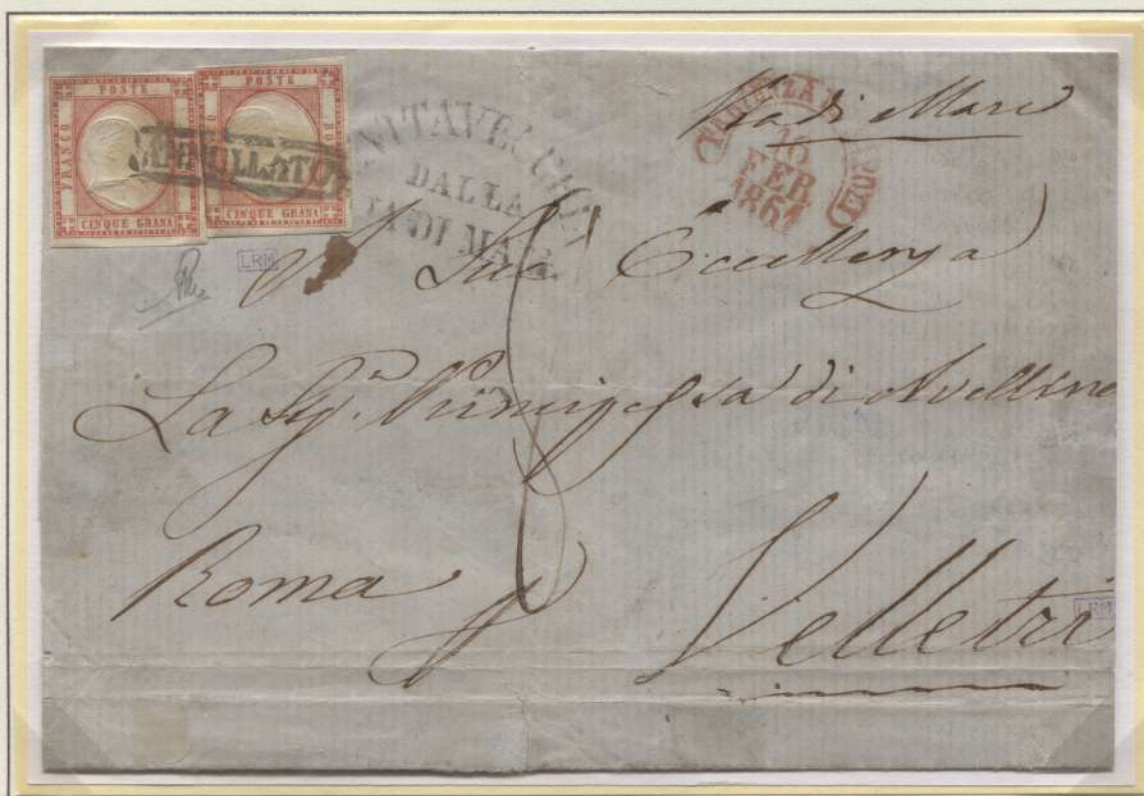 POSTE
FRANCO
CINQUE GRANA
POSTE
O
BO
CINQUE GRANA
ANNULLATO
CIVITAVECCHIA
DALLA
VIA DI MARE
Via di Mare
PARTENZA
FEB
1861
LRM
A Sua Eccellenza
La Sig.ra Principessa di Avellino
Roma
p
Velletri
LRM